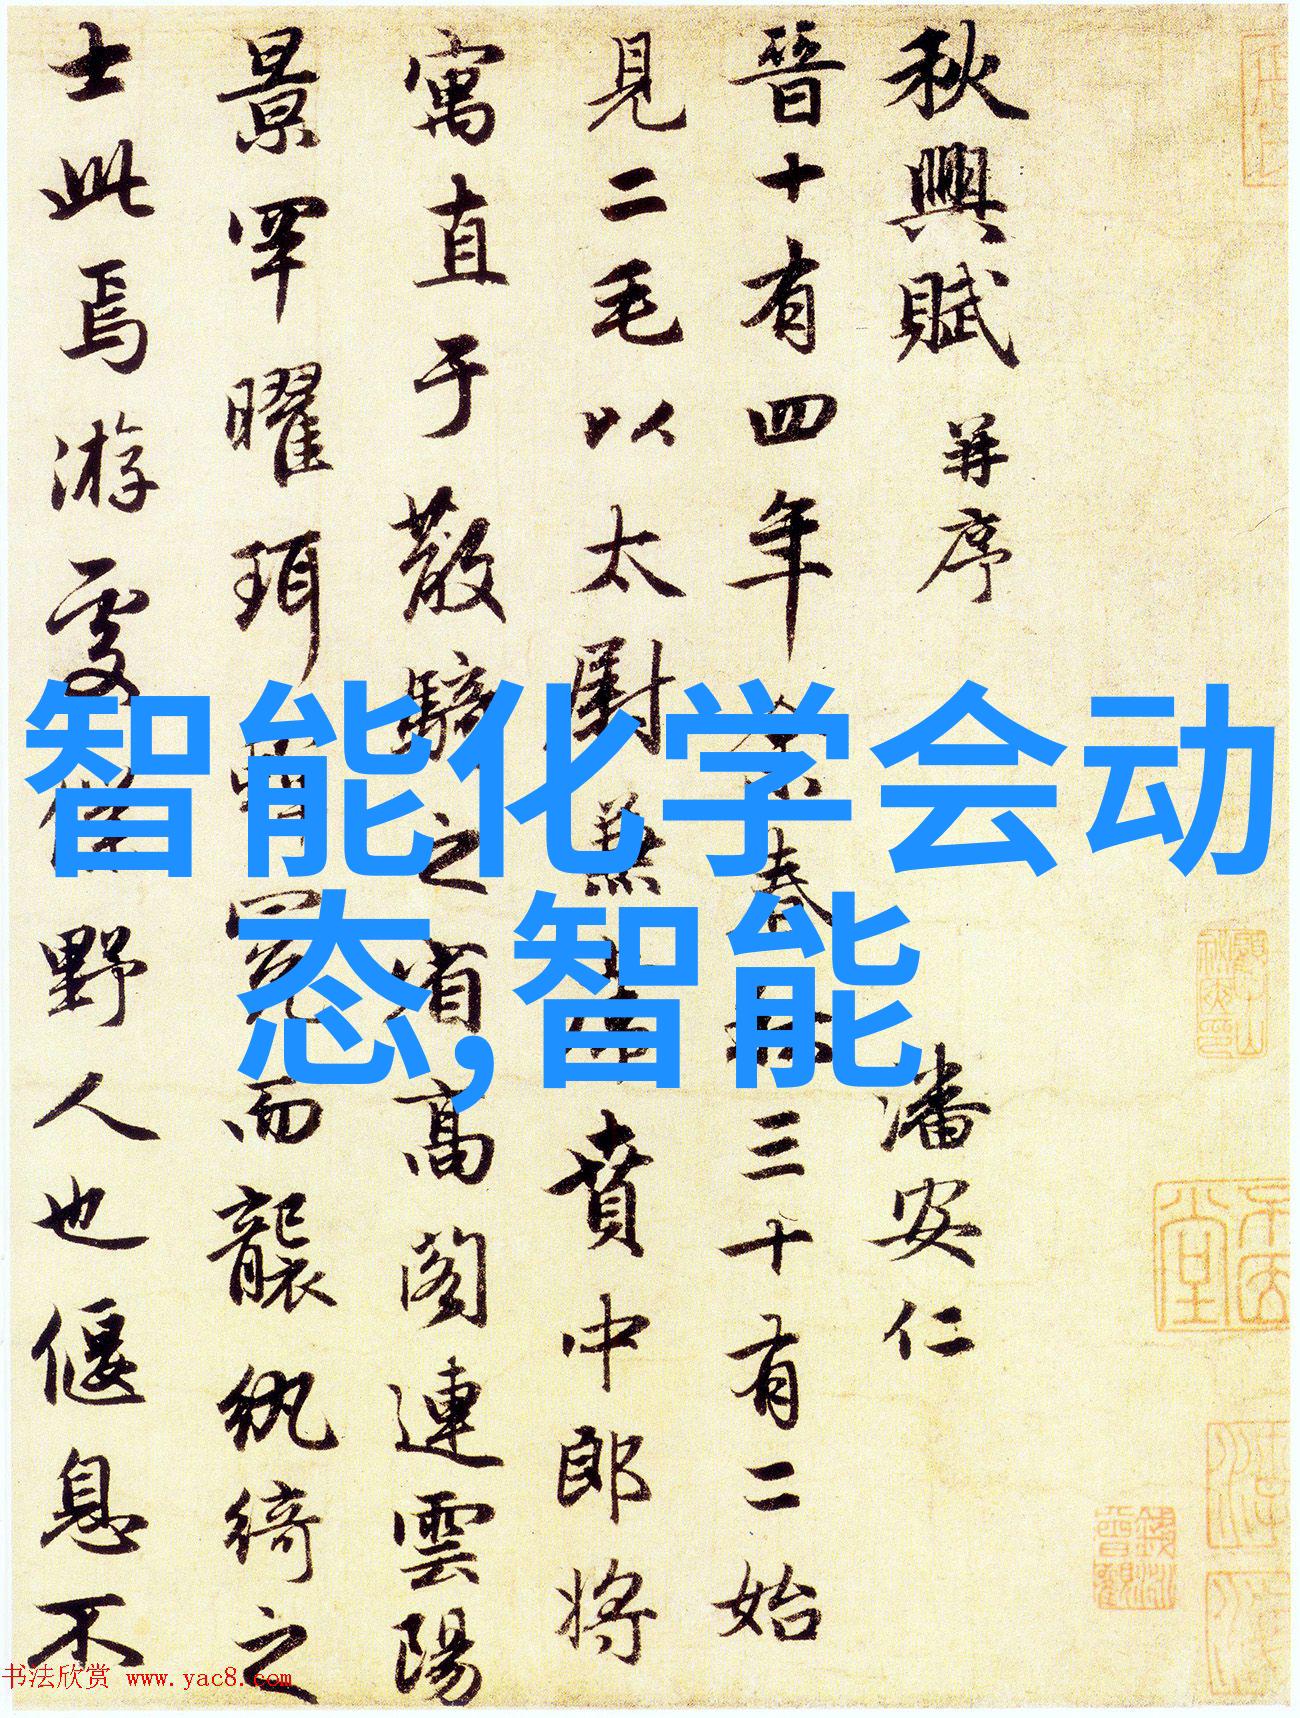 秋興賦 并序 潘安仁
晉十有四年余春秋三十有二始
見二毛以太尉兼虎賁中郎将
寓直于散騎之省髙閣連雲陽
景罕曜珥蟬冕而襲紈綺之
士此焉游處僕野人也偃息不
智能化学会动
态,智能
书法欣赏 www.yac8.com